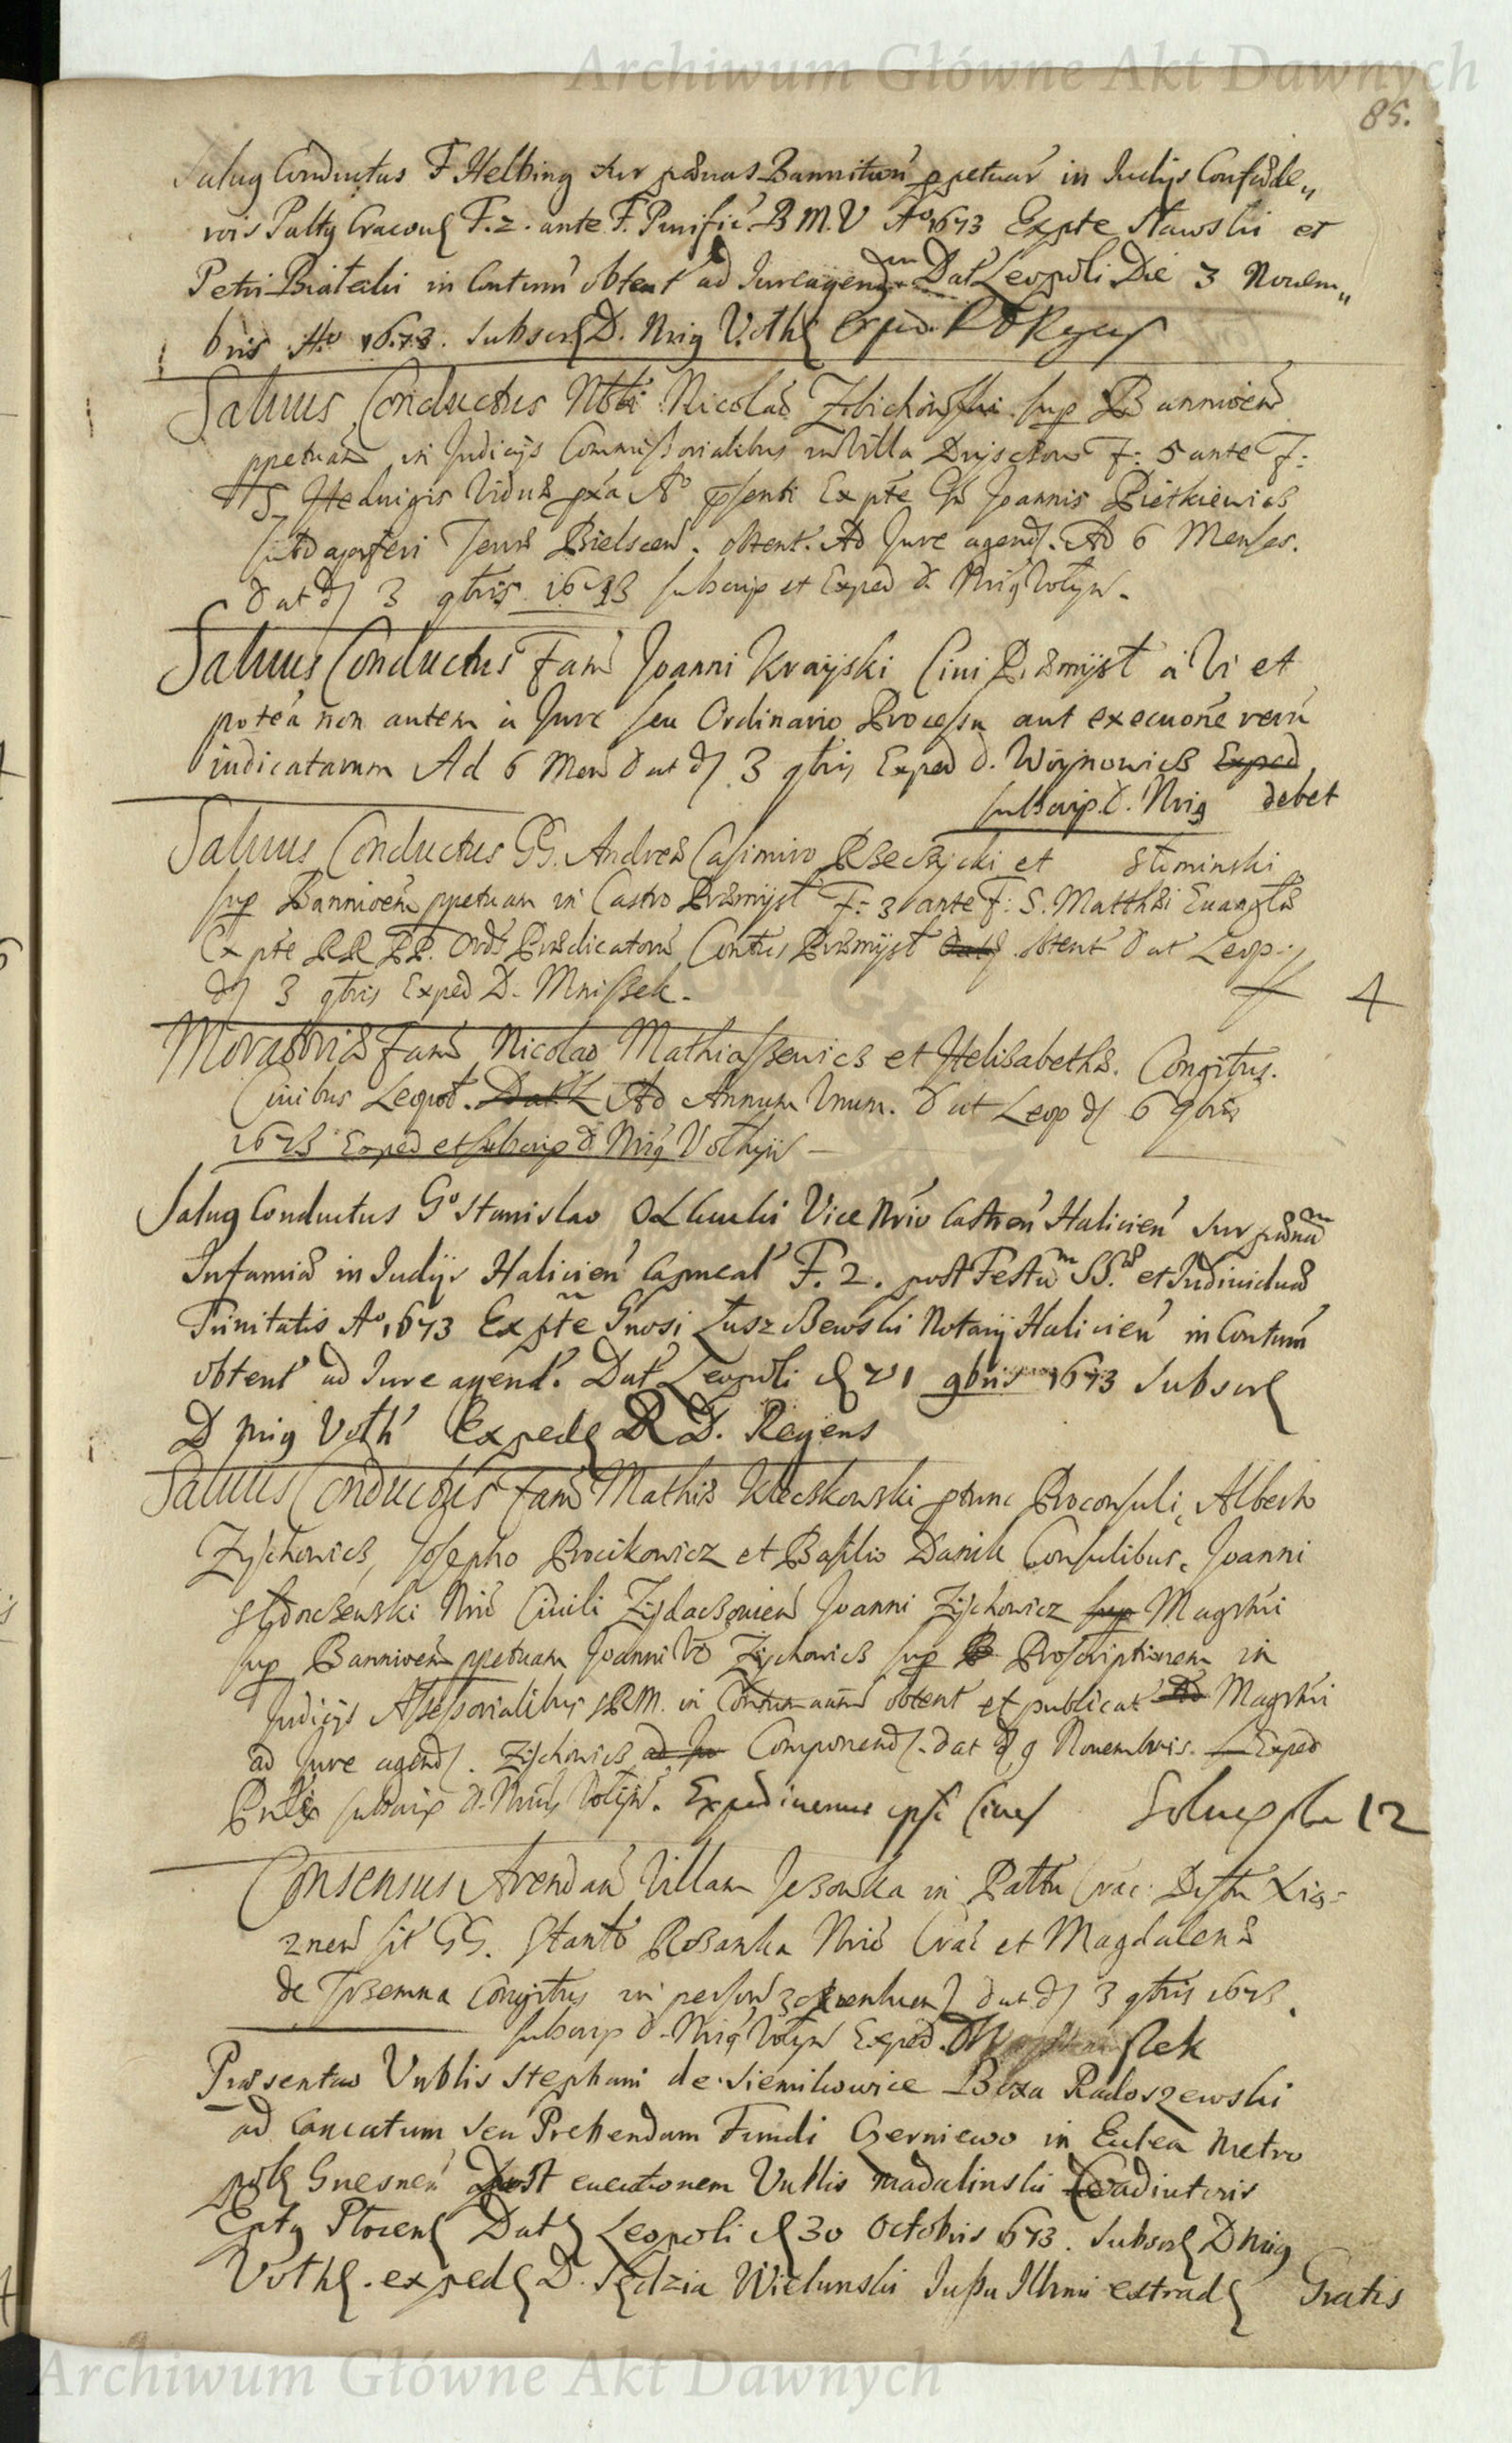 Archiwum Główne Akt Dawnych
85.
Salvus Conductus F Helbing sup pænas Bannitiōn ppetuar in Iudijs Confæde„
rōis Palty Cracoụ F. 2. ante F. Purific. B M. V Aº 1673 Expte Sławski et
Petri Białecki in Contum obtent ad Iure agendum Dat Leopoli Die 3 Novem„
bris Aº 1673. Subscr D. Nrig Voth Exped. R D Regens
Salvus Conductus Nbli Nicolao Zbichowski sup Bannioēm
ppetuam in Judicijs Commissorialibus in Villa Dryschow F: 5 ante F:
S. Hedwigis Viduæ pxa Aº pſenti Expte Joannis Pietkiewicz
Terræ Bielscen. obtent. Ad Jure agend. Ad 6 Menses.
dat d 3 9bris 1673 subscrip et Exped d. Nrig Volyn.
Salvus Conductus Fam Joanni Krayski Civi Præmysl à Vi et
potēa non autem à Jure seu Ordinario Processu aut executiōne rerū
iudicatarum Ad 6 Men dat d 3 9bris Exped d. Woynowicz Exped
subscrip. d. Nrig debet
Salvus Conductus GG. Andreæ Casimiro Rzeczycki et Słominski
sup Bannioēm ppetuam in Castro Præmysl F: 3 ante F: S. Matthæi Evanglæ
Expte RR PP. Ords Prædicatorū Contus Præmysl obtent dat Leop:
d 3 9bris Exped D. Mniszek. 4
Moratoriæ Fam Nicolao Mathiaszewicz et Helisabethæ. Congitus.
Civibus Leopol. Dat L Ad Annum Unum. dat Leop d 6 9bris
1673 Exped et subscrip d Nrig Volhyn
Salvus Conductus Gº Stanislao Vice Nrio Castren Halicien sup pænam
Infamiæ in Iudijs Halicien F. 2. post Festum SS. et Individuæ
Trinitatis Aº 1673 Expte Gnosi Łuszczewski Notarij Halicien in Contum
obtent ad Iure agend. Dat Leopoli d 21 9bris 1673 Subscr
D Nrig Voth Exped R D. Regens
Salvus Conductus Fam Mathiæ Kleczkowski ptunc Proconsuli, Alberto
Zychowicz, Josepho Procikowicz et Basilio Danik Consulibus, Joanni
Nrio Civili Zydaczovien Joanni Zychowicz sup Magrhi
sup Bannioēm ppetuam Joanni Vō Zychowicz sup B Proscriptionem in
Judicijs Assessorialibus SRM. in Contumatiam obtent et publicat Ad Magrhi
ad Jure agend. Zychowicz ad Ju Componend. dat d 9 Novembris. Exped
subscrip d. Nrig Volyn. Expedivemus ipsi Cives Soluep fl 12
Consensus Arendan Villam Jezowska in Pattu Crac: Distu Xią=
znen sit GG. Stanlo Rozanka Nrio Crac et Magdalenæ
de Trzemna Congitus in person dat d 3 9bris 1673.
subscrip d. Nrig Volyn Exped. D Mniszek
Præsentao Vnblis Stephani de Siemikowice Bixa Radoszewski
ad Canctatum seu Prebendam Fundi Czerniewo in Eccles Metro
pol Gnesnen post Vnblis Madalinski Coadiutoris
Eptg Plocen Dat Leopoli d 30 Octobris 1673. Subscr D Nrig
Voth. exped D. Sędzia Wielunski Jussu Illmi extrad Gratis
Archiwum Główne Akt Dawnych